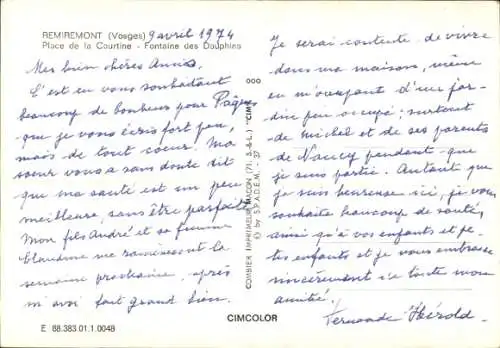 REMIREMONT (Vosges) 9 avril 1974
Place de la Courtine - Fontaine des Dauphins
Mes bien chères Amies,
C'est en vous souhaitant
beaucoup de bonheur pour Pâques
que je vous écris fort peu,
mais de tout coeur. Ma
soeur vous a sans doute dit
que ma santé est un peu
meilleure, sans être parfaite.
Mon fils André et sa femme
Claudine me la
semaine prochaine, après
m'avoir fait grand bien.
E 88.383.01.1.0048
COMBIER IMPRIMEUR MACON (71, S.-&-L.) "CIM"
© by S.P.A.D.E.M. - 37
CIMCOLOR
Je serai contente de vivre
dans ma maison, même
en m'occupant d'un jar-
din peu occupé; surtout
de Michel et de ses parents
de Nancy pendant que
je suis partie. Autant que
je suis heureuse ici, je vous
souhaite beaucoup de santé,
ainsi qu'à vos enfants et pe-
tits enfants et je vous embrasse
sincèrement de toute mon
amitié.
Fernande Hérold.